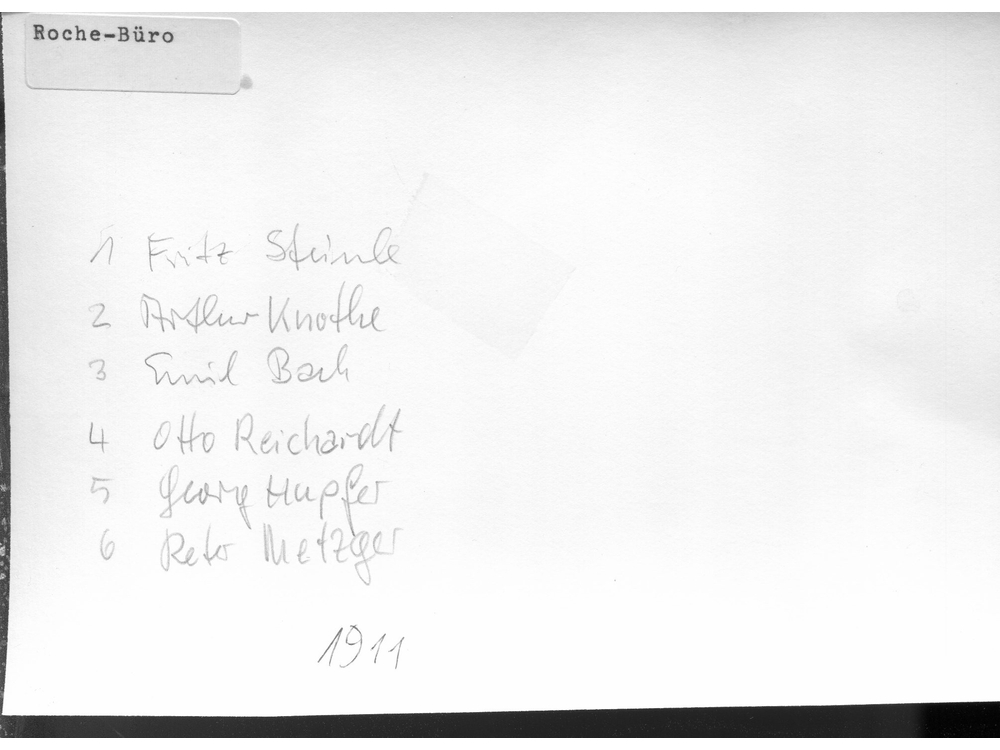 Roche-Büro
1 Fritz Steinle
2 Arthur Knothe
3 Emil Bach
4 Otto Reichardt
5 Georg Hupfer
6 Reto Metzger
1911